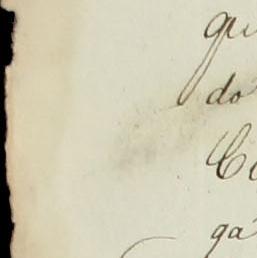 qu
do
Co
ga